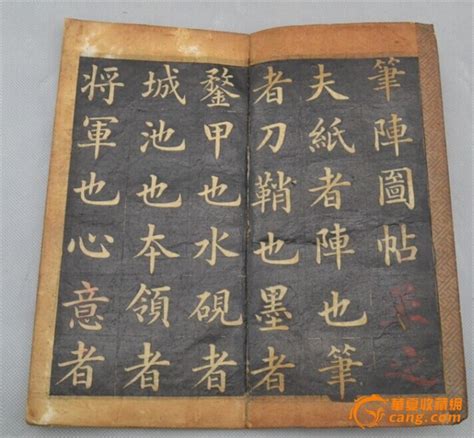 筆陣圖帖
夫紙者陣也筆
者刀鞘也墨者
鍪甲也水硯者
城池也本領者
将軍也心意者
華夏收藏網
cang.com